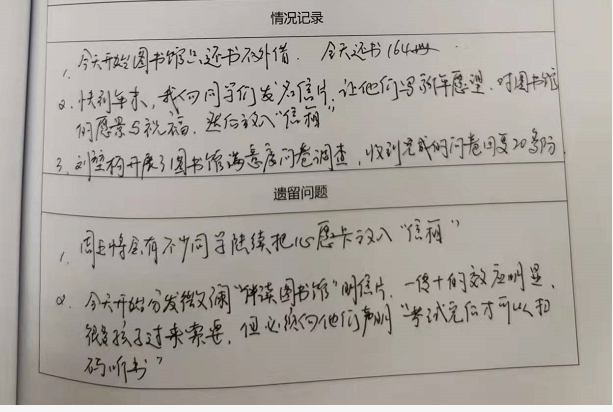 情况记录
1、今天开始图书馆只还书不外借. 今天还书164册
2、快到年末,我们向同学们发名信片,让他们写新年愿望、对图书馆
的愿景与祝福,然后放入“信箱”
3、刘 开展了图书馆满意度问卷调查,收到完成的问卷回复20多份.
遗留问题
1、周上将会有不少同学陆续把心愿卡放入“信箱”
2、今天开始分发微澜“伴读图书馆”明信片,一传十的效应明显,
很多孩子过来索要,但必须向他们声明“考试完后才可以扫
码听书”